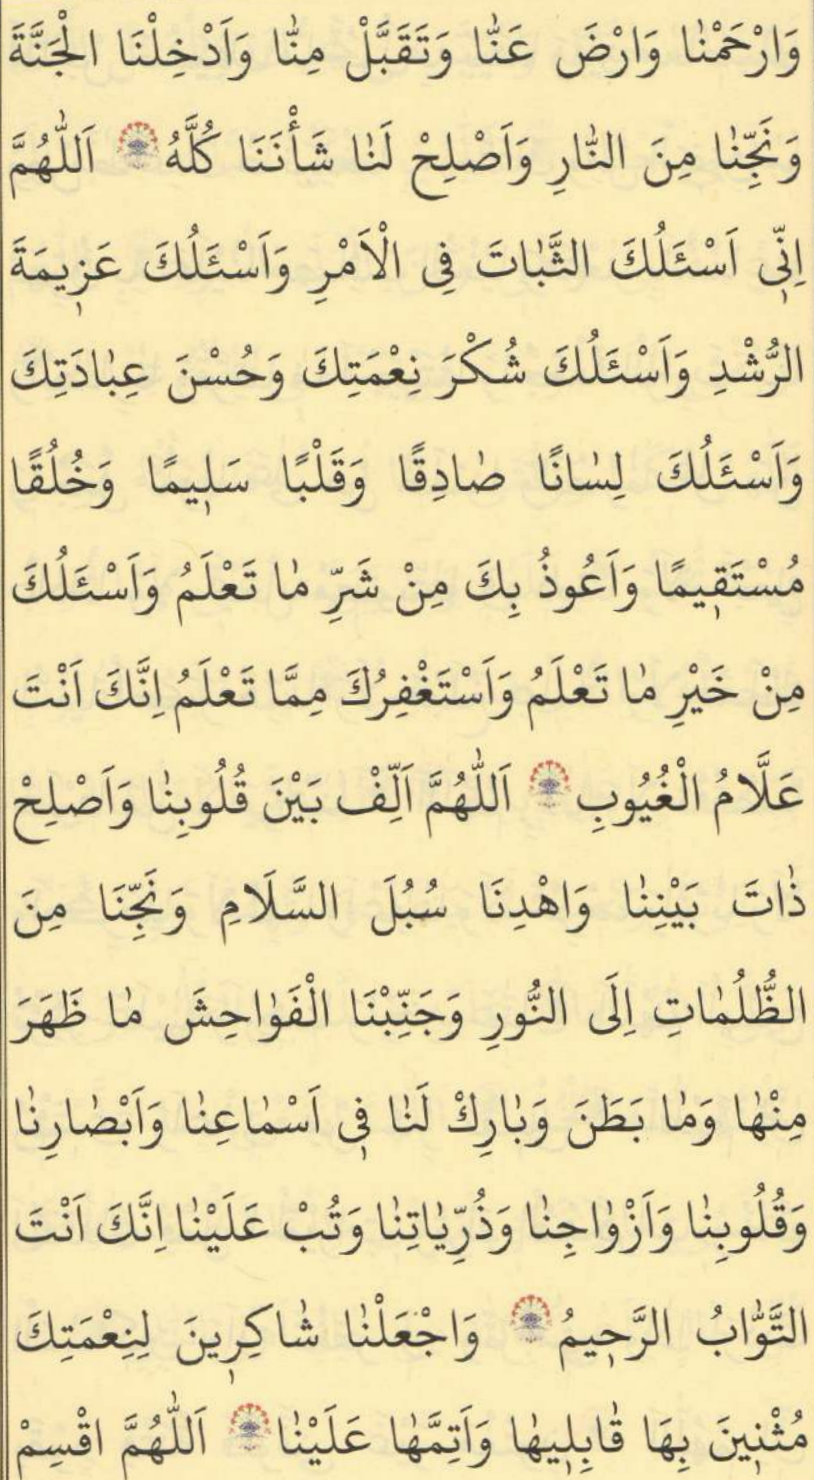 وَارْحَمْنٰا وَارْضَ عَنّٰا وَتَقَبَّلْ مِنّٰا وَاَدْخِلْنَا الْجَنَّةَ
وَنَجِّنٰا مِنَ النّٰارِ وَاَصْلِحْ لَنٰا شَأْنَنَا كُلَّهُ اَللّٰهُمَّ
اِنّٖى اَسْئَلُكَ الثَّبٰاتَ فِى الْاَمْرِ وَاَسْئَلُكَ عَزٖيمَةَ
الرُّشْدِ وَاَسْئَلُكَ شُكْرَ نِعْمَتِكَ وَحُسْنَ عِبٰادَتِكَ
وَاَسْئَلُكَ لِسٰانًا صٰادِقًا وَقَلْبًا سَلٖيمًا وَخُلُقًا
مُسْتَقٖيمًا وَاَعُوذُ بِكَ مِنْ شَرِّ مٰا تَعْلَمُ وَاَسْئَلُكَ
مِنْ خَيْرِ مٰا تَعْلَمُ وَاَسْتَغْفِرُكَ مِمَّا تَعْلَمُ اِنَّكَ اَنْتَ
عَلَّامُ الْغُيُوبِ اَللّٰهُمَّ اَلِّفْ بَيْنَ قُلُوبِنٰا وَاَصْلِحْ
ذٰاتَ بَيْنِنٰا وَاهْدِنَا سُبُلَ السَّلَامِ وَنَجِّنَا مِنَ
الظُّلُمٰاتِ اِلَى النُّورِ وَجَنِّبْنَا الْفَوٰاحِشَ مٰا ظَهَرَ
مِنْهٰا وَمٰا بَطَنَ وَبٰارِكْ لَنٰا فٖى اَسْمٰاعِنٰا وَاَبْصٰارِنٰا
وَقُلُوبِنٰا وَاَزْوٰاجِنٰا وَذُرِّيّٰاتِنٰا وَتُبْ عَلَيْنٰا اِنَّكَ اَنْتَ
التَّوّٰابُ الرَّحٖيمُ وَاجْعَلْنٰا شٰاكِرٖينَ لِنِعْمَتِكَ
مُثْنٖينَ بِهَا قٰابِلٖيهٰا وَاَتِمَّهٰا عَلَيْنٰا اَللّٰهُمَّ اقْسِمْ